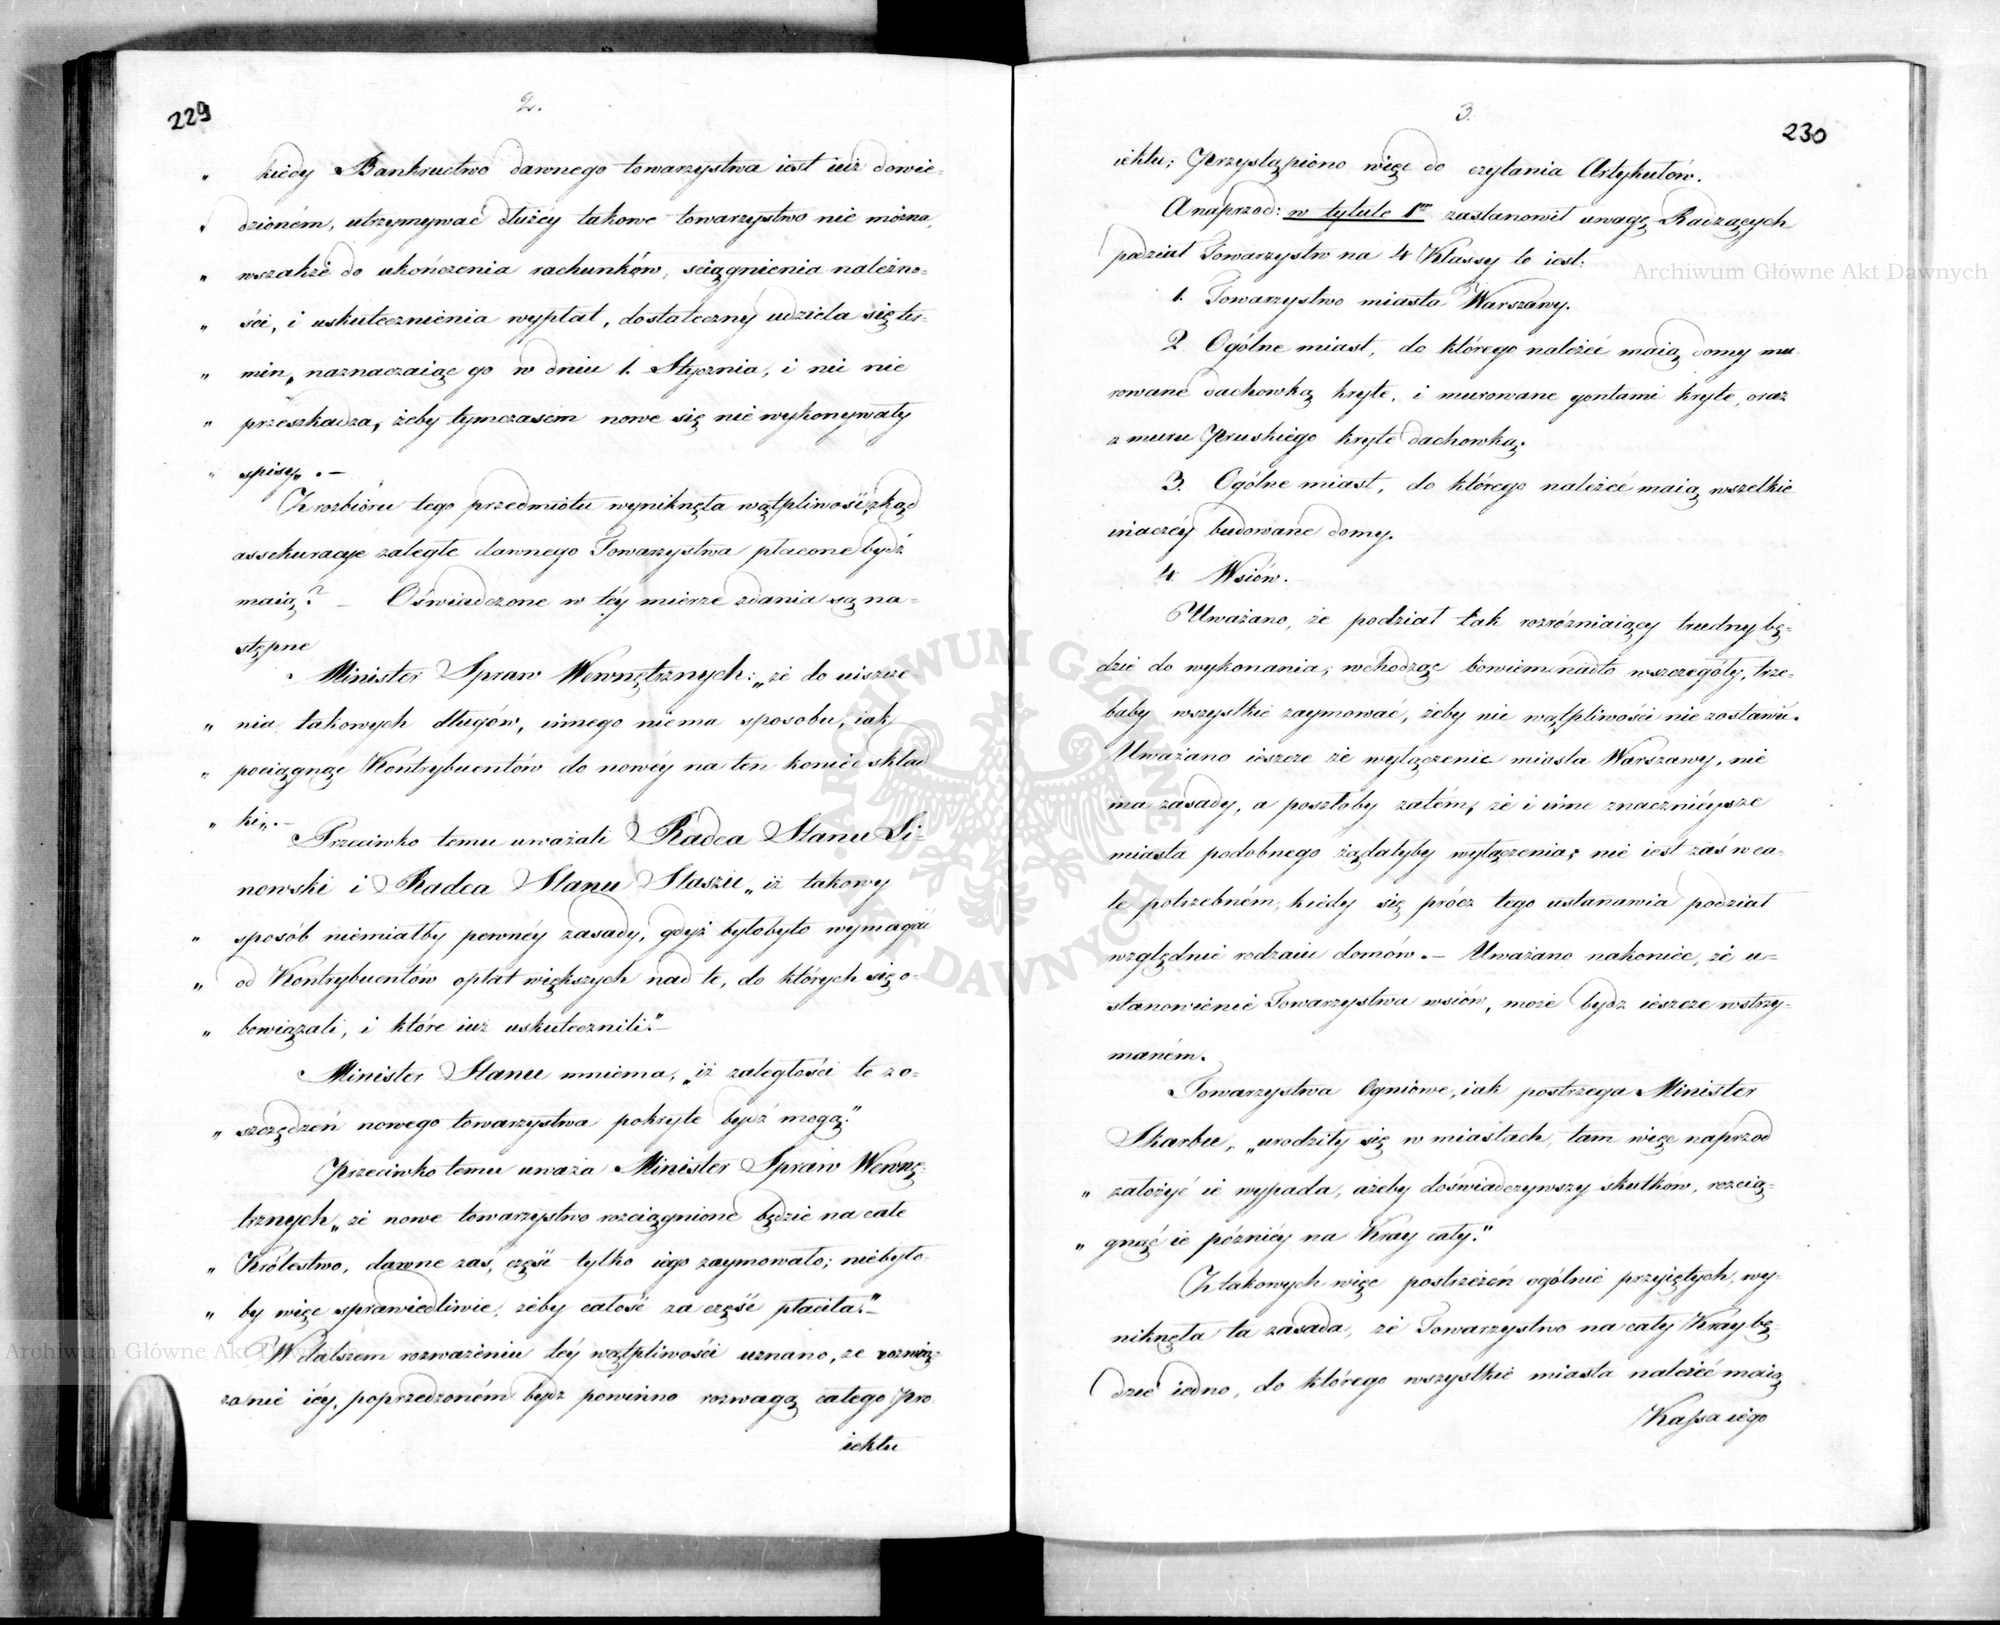 229
2.
„ kiedy Bankructwo dawnego towarzystwa iest iuż dowie-
„ dzioném, utrzymywać dłużéy takowe towarzystwo nie można,
„ wszakże do ukończenia rachunków, sciągnienia należno-
„ ści, i uskutecznienia wypłat, dostateczny udziela się ter-
„ min, naznaczaiąc go w dniu 1. Stycznia, i nic nie
„ przeszkadza, żeby tymczasem nowe się nie wykonywały
„ spisy„.—
Z rozbioru tego przedmiotu wyniknęła wątpliwość, zkąd
assekuracye zaległe dawnego Towarzystwa płacone bydź
maią? — Oświadczone w téy mierze zdania są na-
stępne
Minister Spraw Wewnętrznych: „że do uiszcze-
„ nia takowych długów, innego niema sposobu, iak
„ pociągnąć Kontrybuentów do nowéy na ten koniec skład
„ ki„.—
Przeciwko temu uważali Radca Stanu Li-
nowski i Radca Stanu Staszic „iż takowy
„ sposób niemiałby pewnéy zasady, gdyż byłobyto wymagać
„ od Kontrybuentów opłat większych nad te, do których się o-
„ bowiązali, i które iuż uskutecznili."—
Minister Stanu mniema, „iż zaległości te z o-
„ szczędzeń nowego towarzystwa pokryte bydź mogą."
Przeciwko temu uważa Minister Spraw Wewnę-
trznych „że nowe towarzystwo rozciągnione będzie na całe
„ Królestwo, dawne zaś, część tylko iego zaymowało; niebyło-
„ by więc sprawiedliwie, żeby całość za część płaciła."—
W dalszém rozważeniu téy wątpliwości uznano, że rozwią-
zanie iéy, poprzedzoném bydz powinno rozwagą całego Pro
iektu
230
3.
iektu; Przystąpiono więc do czytania Artykułów.
A naprzod: w tytule 1m zastanowił uwagę Radzących
podział Towarzystw na 4 Klassy to iest:
1. Towarzystwo miasta Warszawy.
2. Ogólne miast, do którego należeć maią domy mu-
rowane dachowką kryte, i murowane gontami kryte, oraz
z muru Pruskiego kryte dachowką.
3. Ogólne miast, do którego należeć maią wszelkie
inaczéy budowane domy.
4. Wsiów.
Uważano, że podział tak rozróżniaiący trudny bę-
dzie do wykonania; wchodząc bowiem nadto w szczegóły, trze-
baby wszystkie zaymować, żeby nic wątpliwości nie zostawić.
Uważano ieszcze że wyłączenie miasta Warszawy, nie
ma zasady, a poszłoby zatém, że i inne znacznieysze
miasta podobnego żądałyby wyłączenia; nie iest zaś w ca-
le potrzebném, kiedy się prócz tego ustanawia podział
względnie rodzaiu domów.— Uważano nakoniec, że u-
stanowienie Towarzystwa wsiów, może bydz ieszcze wstrzy-
maném.
Towarzystwa Ogniowe, iak postrzega Minister
Skarbu, „urodziły się w miastach, tam więc naprzod
„ założyć ie wypada, ażeby doświadczywszy skutków, rozcią-
„ gnąć ie pózniéy na Kray cały."
Z takowych więc postrzeżeń ogólnie przyiętych, wy-
niknęła ta zasada, że Towarzystwo na cały Kray bę-
dzie iedno, do którego wszystkie miasta należeć maią
Kassa iego
Archiwum Główne Akt Dawnych
Archiwum Główne Akt Dawnych
ARCHIWUM GŁÓWNE AKT DAWNYCH